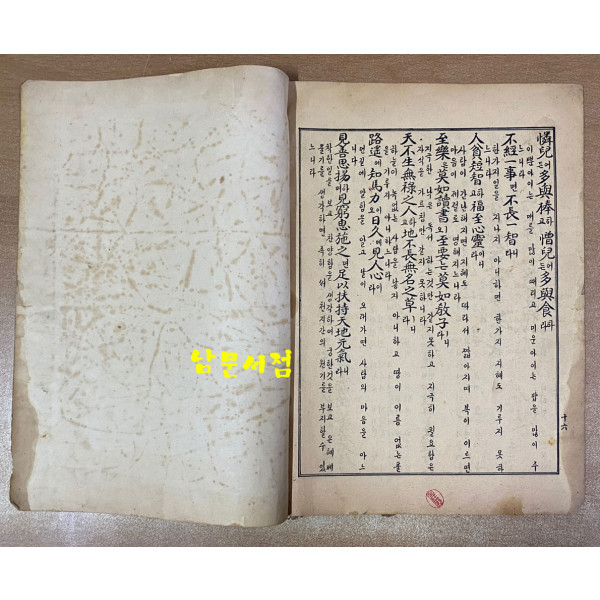 憐兒어든多與棒하고憎兒어든多與食하라
이쁜아이는 매를 많이 때리고 미운아이는 밥을 많이 주
느니라
不經一事면不長一智라
한가지일을 지나지 아니하면 한가지 지혜도 기루지 못하
느니라
人貧短智하고福至心靈이니라
사람이 가난해지면 지혜도 따라서 짧아지며 복이 이르면
마음이 저절로 영해지느니라
至樂은莫如讀書오至要는莫如敎子니라
지극한 낙은 독서하는것만 같지못하고 지극히 필요함은
자식을 가르침만 같지 못하니라
天不生無祿之人하고地不長無名之草니라
하늘이 녹없는 사람을 낳지 아니하고 땅이 이름 없는풀
을 기루지 아니하나니라
路遙에知馬力이오日久에見人心이니라
먼길에 말의힘을 알고 날이 오래가면 사람의 마음을 아느
니라
見善思揚하며見窮思施之면足以扶持天地元氣니라
착한일을보고 찬양함을 생각하며 궁한것을보고 은혜베
풀기를 생각하면 족히 써 천지간의 원기를 부지할수있
느니라
十六
남문서점